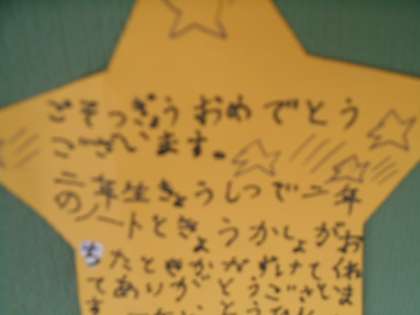 ごそつぎょうおめでとう
ございます。
二年生きょうしつで二年
のノートときょうかしょがお
ちたときかたづけてくれ
てありがとうございま
す